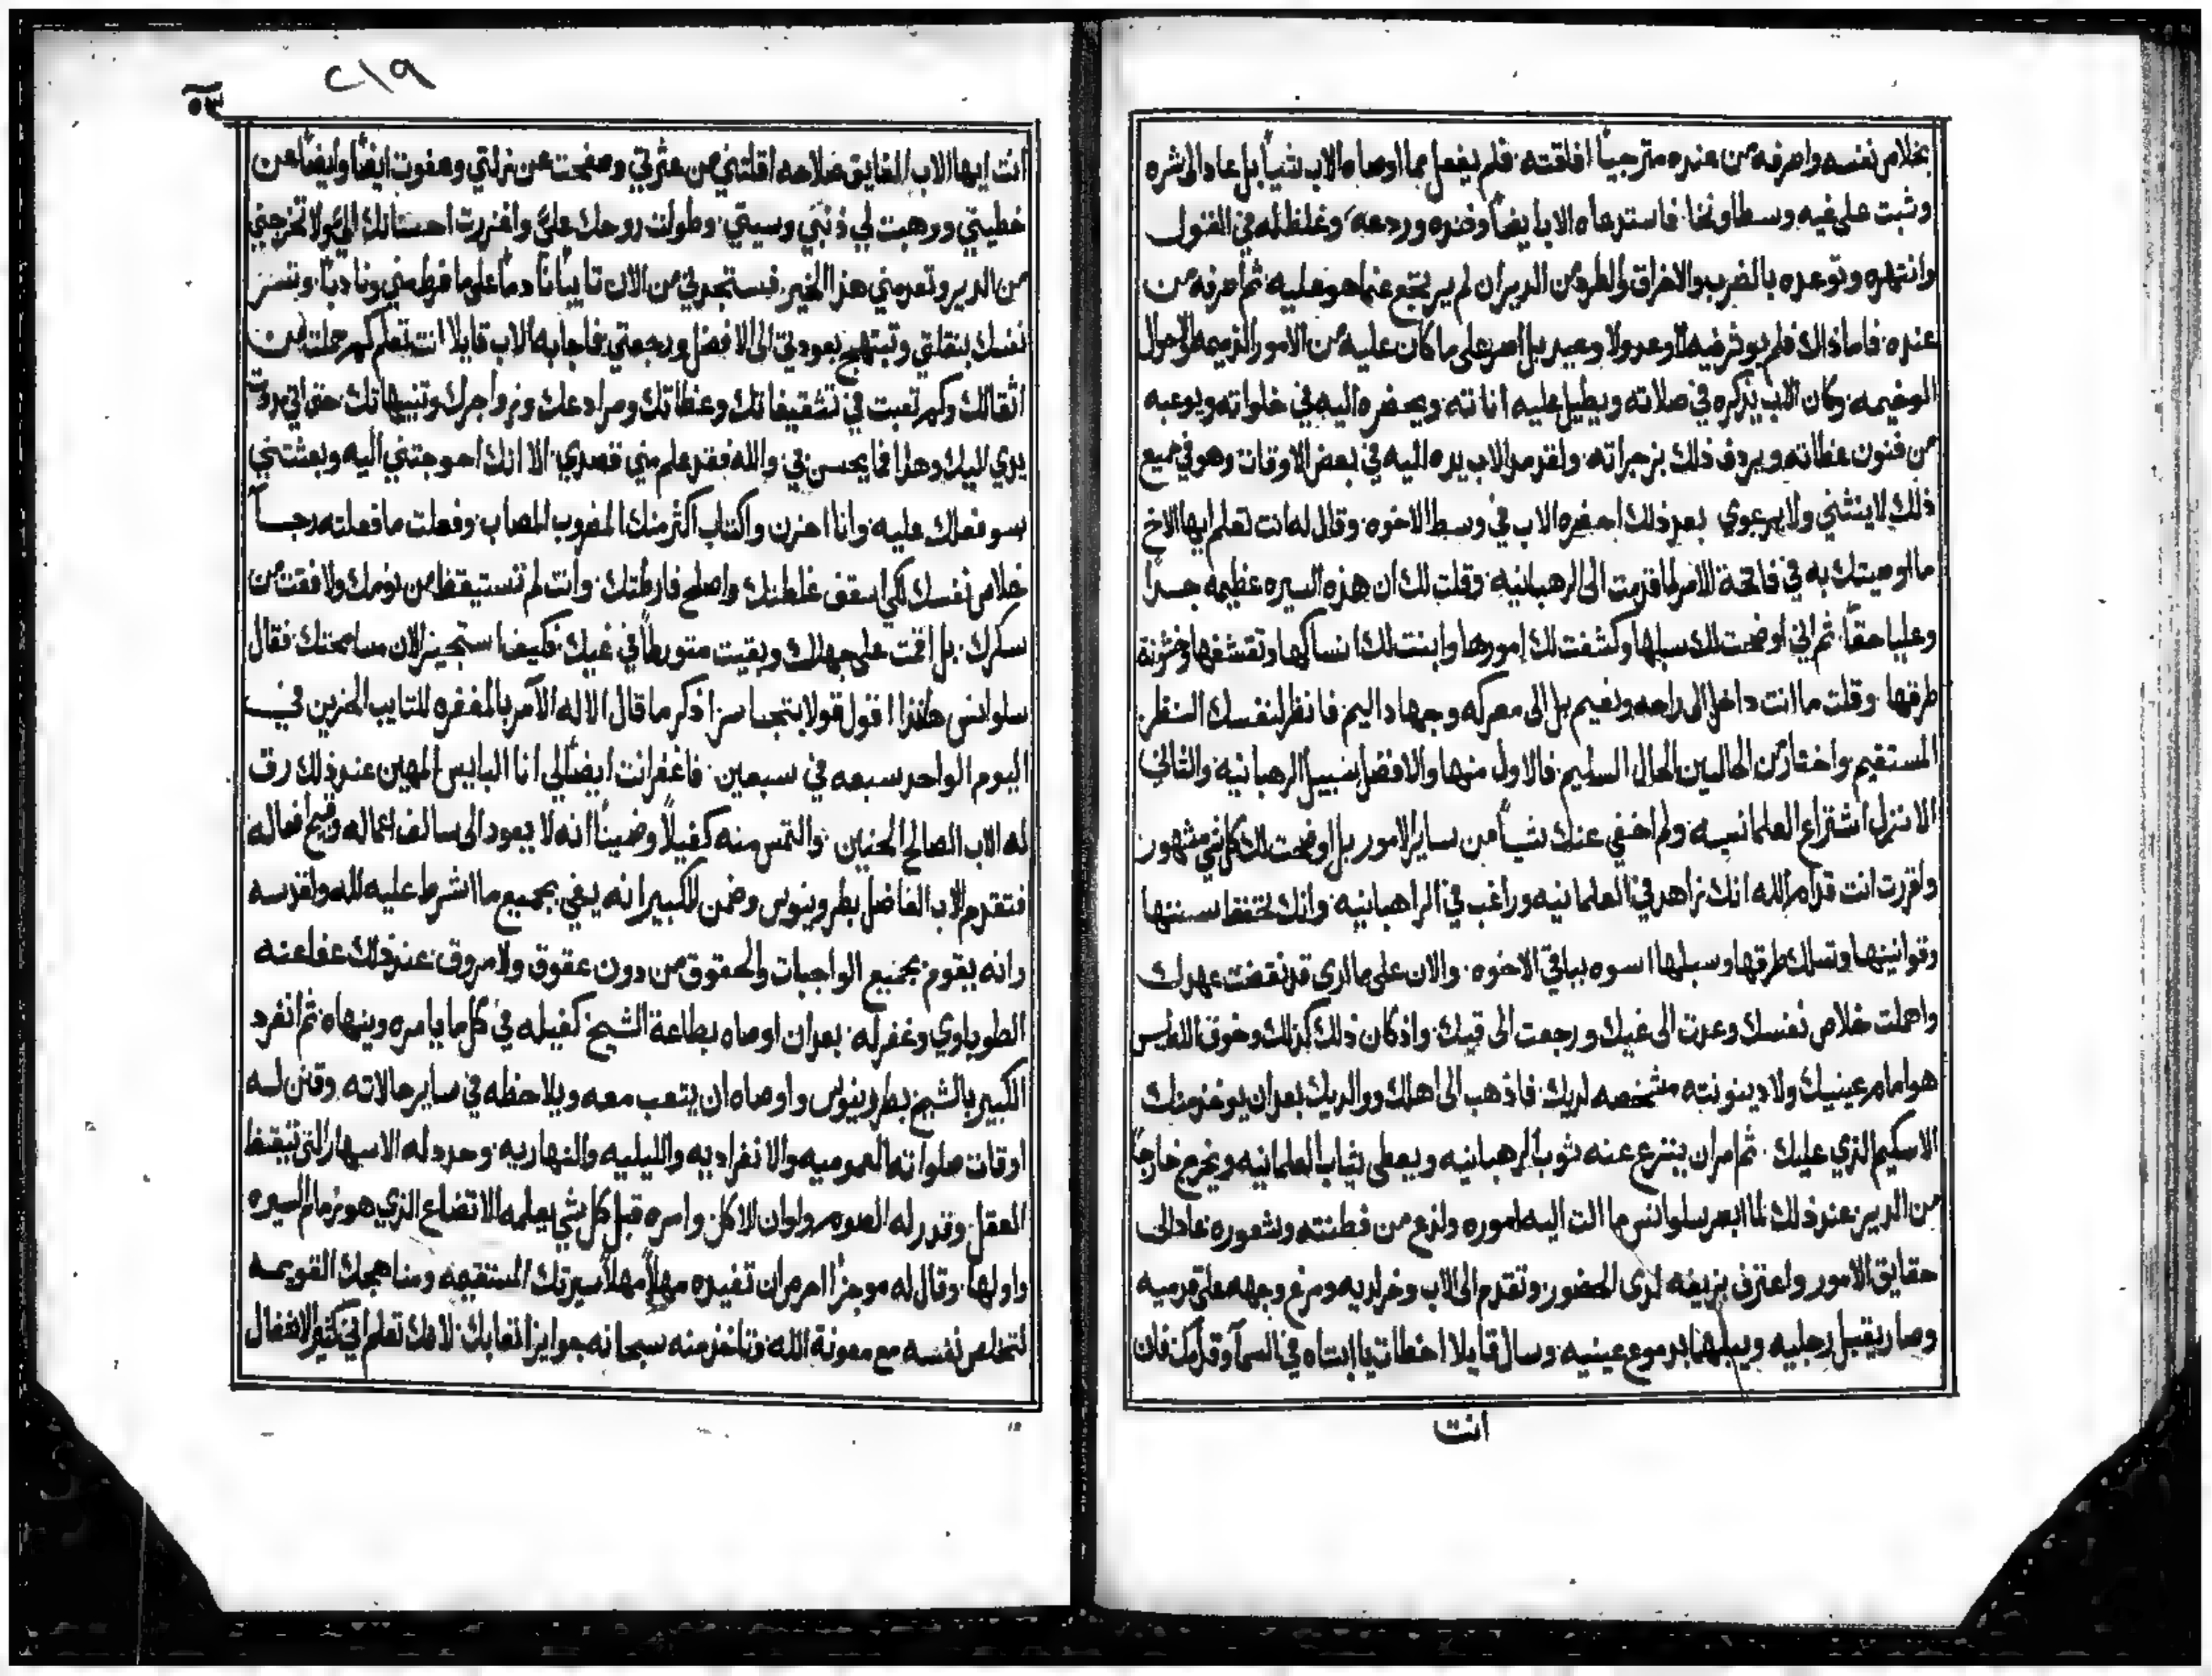 بخلاص نفسه واصرفه من عنده مترجياً افاقته. فلم يفعل بما اوصاه الاب شياً بل عاد الى شره
وثبت على غيه وسطا ونخا. فاستدعاه الاب ايضاً وحذره وردعه. وغلظ له في القول
وانتهره وتوعده بالضرب والاخراق والطرد من الدير ان لم يرتجع عما هو عليه. ثم صرفه من
عنده. فاما ذاك فلم يوثر فيه لا وعد ولا وعيد بل اصر على ما كان عليه من الامور الذميمه والاحوال
الوخيمه. وكان الاب يذكره في صلاته ويطيل عليه اناته ويحضره اليه في خلواته ويوعبه
من فنون عظاته ويردف ذلك بزجراته. ولقد مد الاب يده اليه في بعض الاوقات وهو في جميع
ذلك لا ينثني ولا يرعوي بعد ذلك احضره الاب في وسط الاخوه. وقال له انت تعلم ايها الاخ
ما اوصيتك به في فاتحة الامر لما قدمت الى الرهبانيه. وقلت لك ان هذه السيره عظيمه جداً
وعليا حقاً. ثم اني اوضحت لك سبلها وكشفت لك امورها وابنت لك انساكها وتقشفها وخشونة
طرقها. وقلت ما انت داخل الى راحه ونعيم بل الى معركه وجهاد اليم. فانظر لنفسك النظر
المستقيم واختار من الحالين الحال السليم. فالاول منها والافضل سبيل الرهبانيه والثاني
الانزل اشتراع العلمانيه. ولم اخفي عنك شياً من ساير الامور بل اوضحت لك كل شي مشهور
واقررت انت قدام الله انك زاهد في العلمانيه وراغب في الراهبانيه. وانك تحتفظ سننها
وقوانينها وتسلك طرقها وسبلها اسوه بباقي الاخوه. والان على ما ارى قد نقضت عهدك
واهملت خلاص نفسك وعدت الى غيك ورجعت الى قيك. واذ كان ذلك كذلك وخوف الله ليس
هو امام عينيك ولا دينونته مشخصه لديك. فاذهب الى اهلك ووالديك بعد ان يوخذ منك
الاسكيم الذي عليك. ثم امر ان ينتزع عنه ثوب الرهبانيه ويعطى ثياب العلمانيه ويخرج خارجاً
من الدير. عند ذلك لما ابصر سلوانس ما الت اليه اموره ولذع من فطنته وشعوره عاد الى
حقايق الامور واعترف بزيغه لدى الحضور. وتقدم الى الاب وخر لديه ومرغ وجهه على قدميه
وصار يقبل رجليه ويبلها بدموع عينيه. وسال قايلا اخطات يا ابتاه في السما وقدامك فان
انت
٢١٩
٥٣
انت ايها الاب الفايق صلاحه اقلتني من عثرتي وصفحت عن زلتي وعفوت ايضاً وايضاً عن
خطيتي ووهبت لي ذنبي وسيتي. وطولت روحك علي واغزرت احسانك الي ولا تخرجني
من الدير وتعدمني هذا الخير. فستجدني من الان تايباً نادماً على ما فرط مني ونادباً. وتسر
نفسك بنقلتي وتبتهج بعودتي الى الافضل ورجعتي. فاجابه الاب قايلا انت تعلم كم حملت من
اثقالك وكم تعبت في تشقيفاتك وعظاتك ومرادعك وزواجرك وتنبيهاتك حتى اني مددت
يدي اليك وهذا فما يحسن في. والله فقد علم مني قصدي. الا انك احوجتني اليه وبعثتني
بسو فعلك عليه. وانا احزن واكتاب اكثر منك المضروب المصاب. وفعلت ما فعلته رجـاً
خلاص نفسك لكي اسقف غلطتك واصلح فارطتك. وانت لم تستيقظ من نومك ولا فقت من
سكرك. بل اقمت على جهلك وبقيت متورطاً في غيك. فكيف استجيز الان مسامحتك. فقال
سلوانس هانذا اقول قولا بتجاسر اذكر ما قال الاله الآمر بالمغفره للتايب الحزين في
اليوم الواحد سبعه في سبعين. فاغفر انت ايضاً لي انا البايس المهين عند ذلك رق
له الاب الصالح الحنين. والتمس منه كفيلاً وضميناً انه لا يعود الى سالف اعماله وقبيح افعاله
فتقدم الاب الفاضل بطرونيوس وضمن للكبير انه يفي بجميع ما اشرط عليه لله ولقدسه
وانه يقوم بجميع الواجبات والحقوق من دون عقوق ولا مروق. عند ذلك عفا عنه
الطوباوي وغفر له. بعد ان اوصاه بطاعة الشيخ كفيله في كل ما يامره وينهاه. ثم انفرد
الكبير بالشيخ بطرونيوس واوصاه ان يتعب معه ويلاحظه في ساير حالاته. وقنن له
اوقات صلواته العموميه والانفراديه والليليه والنهاريه. وحدد له الاسهار التي تيقظ
العقل. وقدر له الصوم والوان الاكل وامره قبل كل شي يعلمه الاتضاع الذي هو زمام السيره
واولها. وقال له موجزاً احرص ان تفيده مهلاً مهلاً سيرتك المستقيمه ومناهجك القويمه
لتخلص نفسه مع معونة الله وتاخذ منه سبحانه جوايز اتعابك. لانك تعلم اني كثير الاشغال